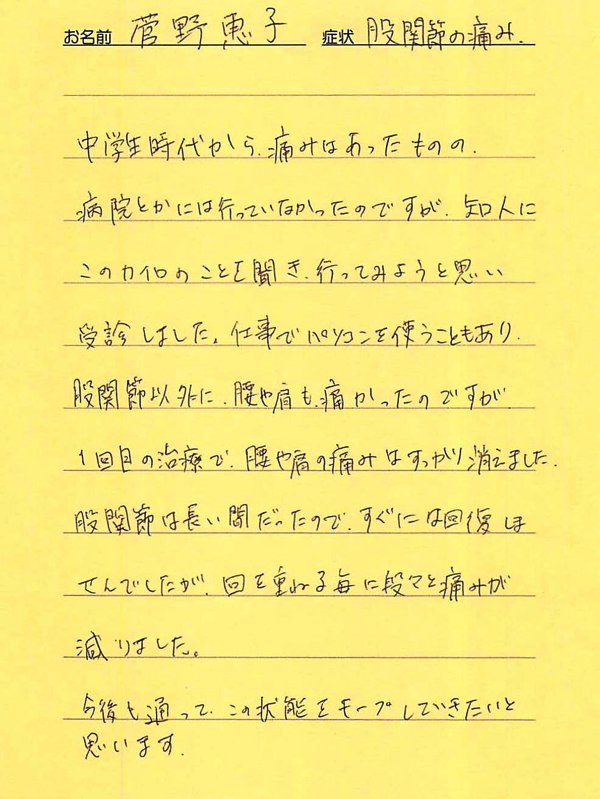 お名前 菅野恵子 症状 股関節の痛み.
中学生時代から、痛みはあったものの、
病院とかには行っていなかったのですが、知人に
このカイロのことを聞き、行ってみようと思い
受診しました。仕事でパソコンを使うこともあり、
股関節以外に、腰や肩も、痛かったのですが、
1回目の治療で、腰や肩の痛みはすっかり消えました.
股関節は長い間だったので、すぐには回復しま
せんでしたが、回を重ねる毎に段々と痛みが
減りました。
今後も通って、この状態をキープしていきたいと
思います.